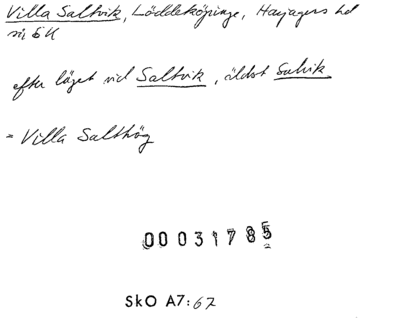 Villa Saltvik, Löddeköpinge, Harjagers hd
sis 5K
efter läget vid Saltvik, äldst Salvik
= Villa Salthög
00031785
SkO A7:67